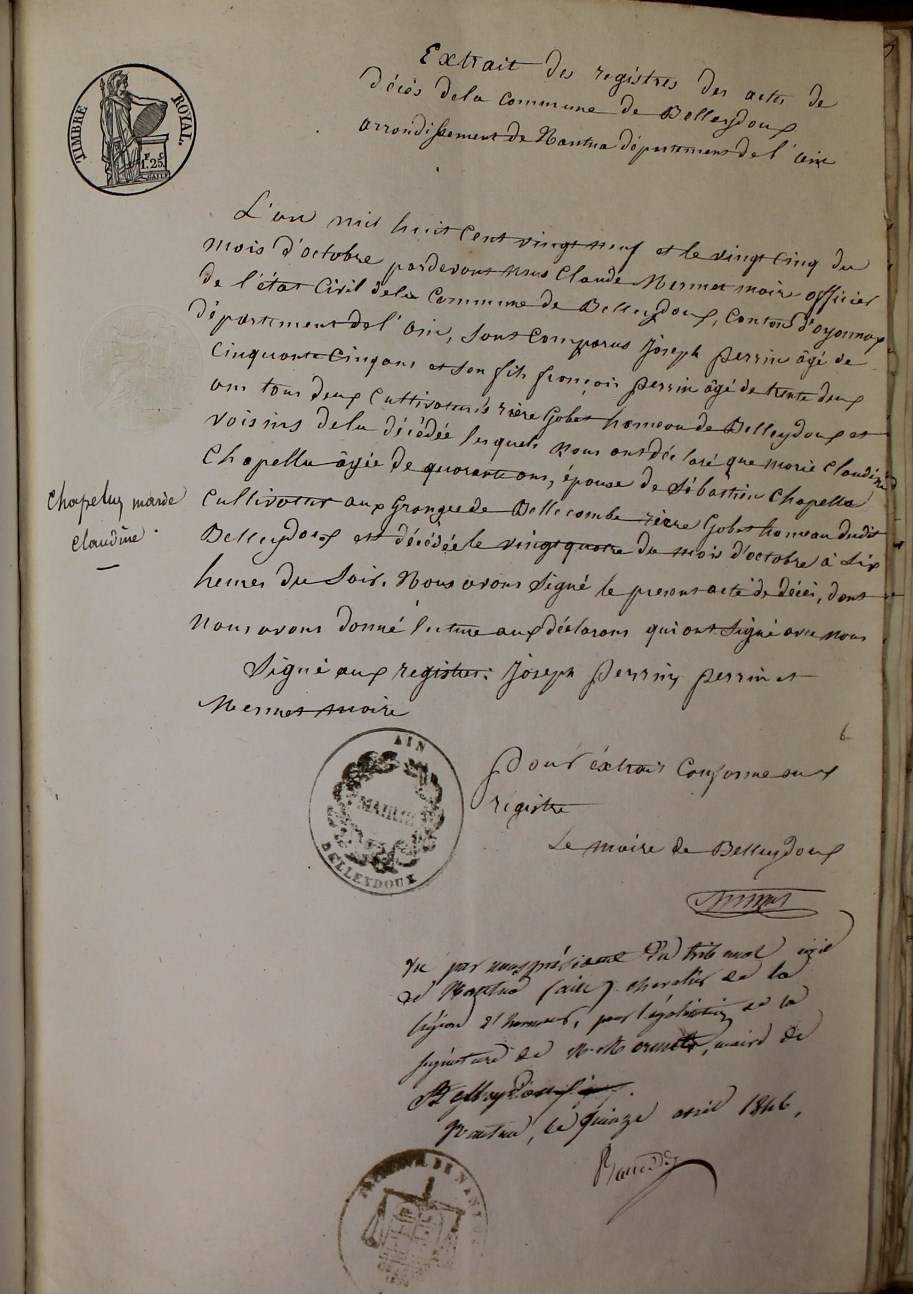 TIMBRE ROYAL
1.25
Extrait des registres des actes de
décès de la Commune de Belleydoux
arrondissement de Nantua département de l'ain
L'an mil huit cent vingt neuf et le vingt cinq du
mois d'octobre pardevant nous Claude Mermet maire officier
de l'état Civil de la Commune de Belleydoux, Canton d'oyonnax
département de l'ain, sont Comparus Joseph Perrin âgé de
Cinquante Cinq ans et son fils françois Perrin âgé de trente deux
ans tous deux Cultivateurs rière Gobet hameau de Belleydoux et
voisins de la décédée lesquels nous ont déclaré que marie Claudine
Chapella âgée de quarante ans, épouse de Sébastien Chapella
Cultivateur aux Granges de Bellecombe rière Gobet hameau dudit
Belleydoux est décédée le vingt quatre du mois d'octobre à Six
heures du Soir. Nous avons Signé le present acte de décès, dont
Nous avons donné lecture aux déclarans qui ont Signé avec nous
Signé aux registres: Joseph Perrin, Perrin et
Mermet maire
Chapeluz marie
Claudine.
AIN
MAIRIE
BELLEYDOUX
6
Pour extrait Conforme aux
régistre
Le maire de Belleydoux
Mermet
Vu par nous président du tribunal civil
de Nantua (ain) chevalier de la
légion d'honneur, pour légalisation de la
signature de Mr Mermet, maire de
Belleydoux.
Nantua, le quinze avril 1846.
TRIBUNAL DE NANTUA